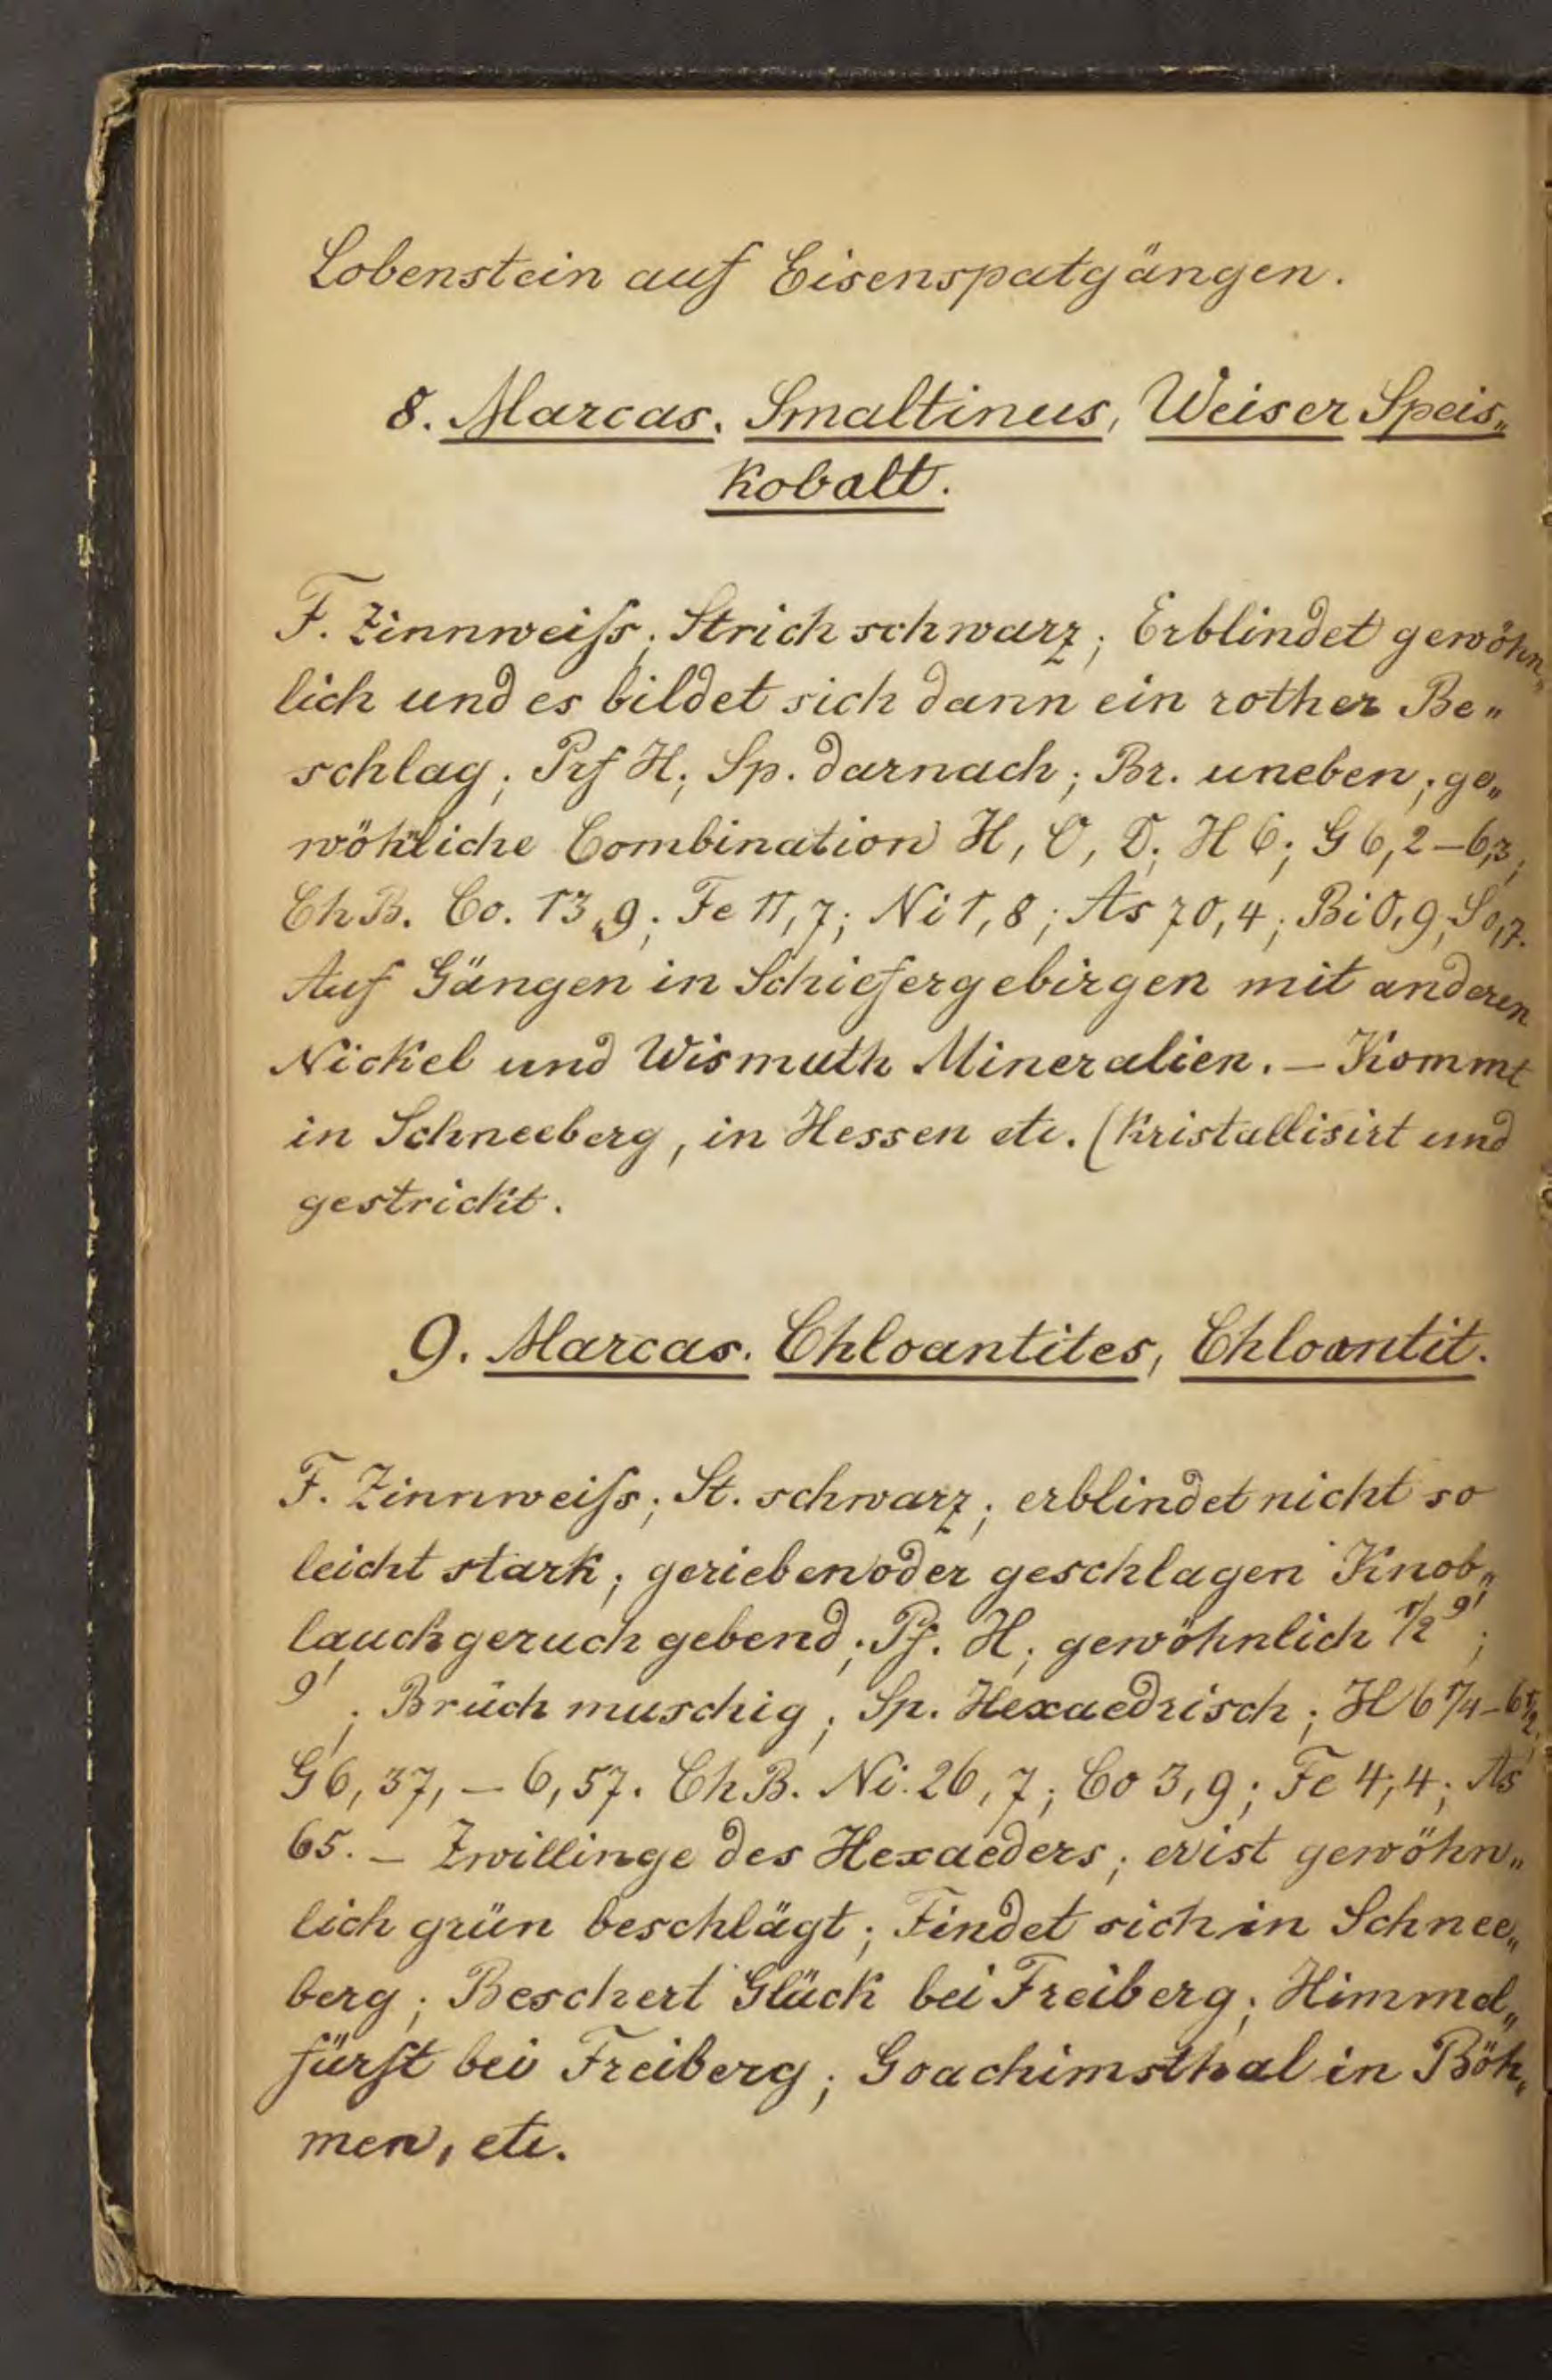 Lobenstein auf Eisenspatgängen.
8. Marcas. Smaltinus, Weiser Speis„
kobalt.
F. Zinnweiſs; Strich schwarz; Erblindet gewöhn„
lich und es bildet sich dann ein rother Be„
schlag; Prf H; Sp. darnach; Br. uneben; ge„
wöhnliche Combination H, O, D; H 6; G 6,2–6,3;
Ch B. Co. 13,9; Fe 11,7; Ni 1,8; As 70,4; Bi 0,9; S 0,7.
Auf Gängen in Schiefergebirgen mit anderen
Nickel und Wismuth Mineralien. – Kommt
in Schneeberg, in Hessen etc. (Kristallisirt und
gestrickt.
9. Marcas. Chloantites, Chloantit.
F. Zinnweiſs; St. schwarz; erblindet nicht so
leicht stark; gerieben oder geschlagen Knob„
lauchgeruch gebend; Pf. H; gewöhnlich 1/2 9';
9'; Bruch muschig; Sp. Hexaedrisch; H 6 1/4–6 1/2;
G 6,37, – 6,57. Ch B. Ni. 26,7; Co 3,9; Fe 4,4; As
65. – Zwillinge des Hexaeders; er ist gewöhn„
lich grün beschlägt; Findet sich in Schnee„
berg; Beschert Glück bei Freiberg; Himmel„
fürſt bei Freiberg; Goachimsthal in Böh„
men, etc.